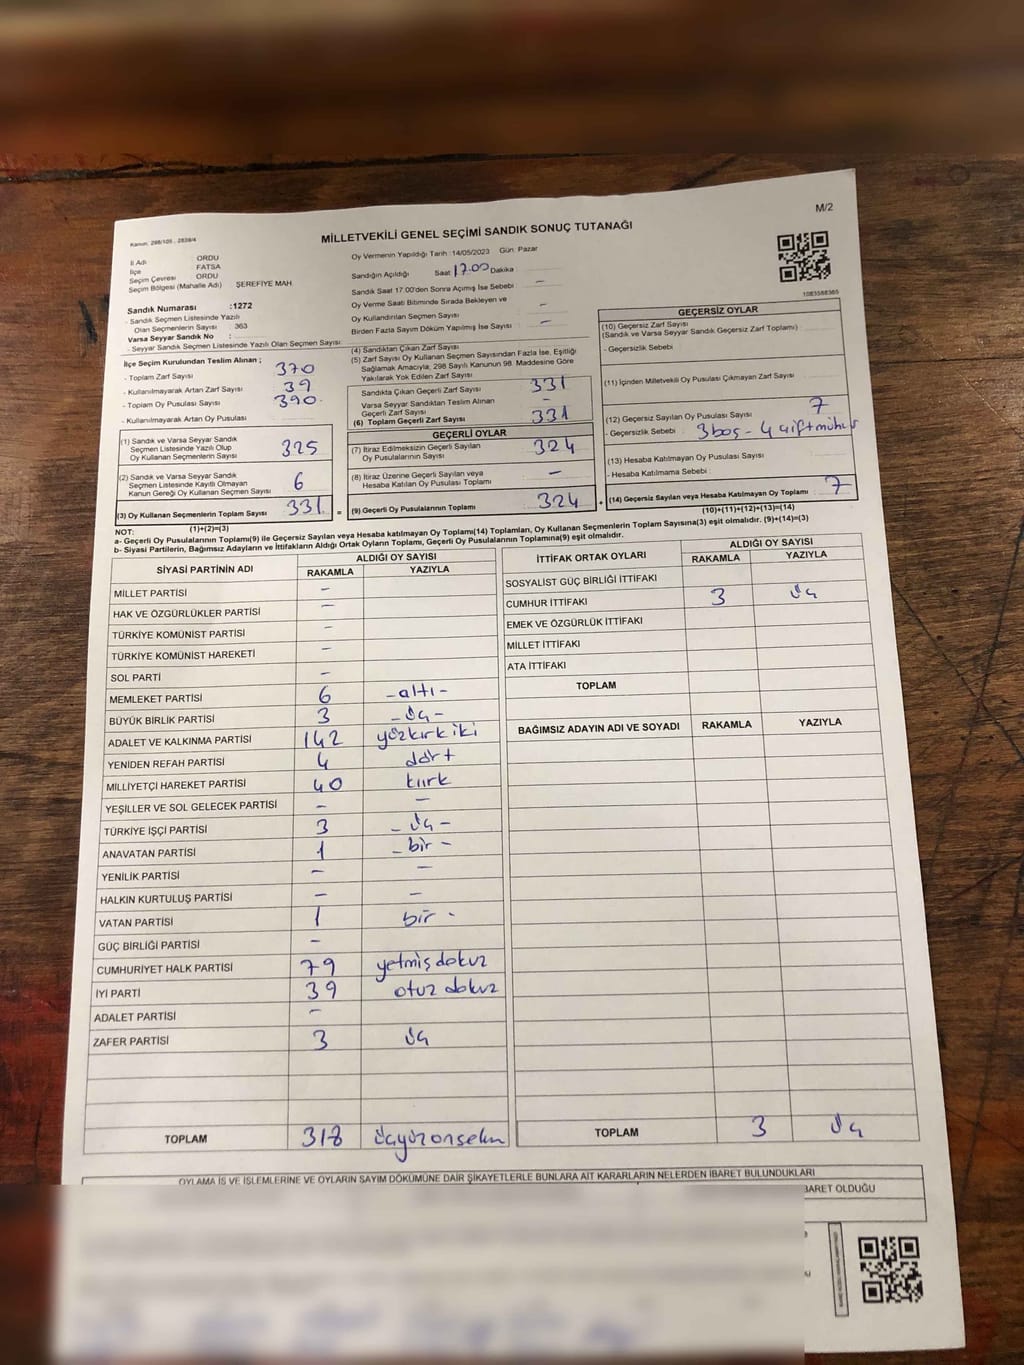 M/2
Kanun: 298/105 - 2839/4
MİLLETVEKİLİ GENEL SEÇİMİ SANDIK SONUÇ TUTANAĞI
İl Adı : ORDU
İlçe : FATSA
Seçim Çevresi : ORDU
Seçim Bölgesi (Mahalle Adı) ŞEREFİYE MAH
Sandık Numarası :1272
- Sandık Seçmen Listesinde Yazılı
Olan Seçmenlerin Sayısı : 363
Varsa Seyyar Sandık No :
- Seyyar Sandık Seçmen Listesinde Yazılı Olan Seçmen Sayısı
Oy Vermenin Yapıldığı Tarih : 14/05/2023 Gün: Pazar
Sandığın Açıldığı Saat 17.00 Dakika :
Sandık Saat 17:00'den Sonra Açılmış İse Sebebi : -
Oy Verme Saati Bitiminde Sırada Bekleyen ve
Oy Kullandırılan Seçmen Sayısı -
Birden Fazla Sayım Döküm Yapılmış İse Sayısı : -
1083588365
İlçe Seçim Kurulundan Teslim Alınan ;
- Toplam Zarf Sayısı 370
- Kullanılmayarak Artan Zarf Sayısı 39
- Toplam Oy Pusulası Sayısı 390
- Kullanılmayarak Artan Oy Pusulası
(1) Sandık ve Varsa Seyyar Sandık
Seçmen Listesinde Yazılı Olup
Oy Kullanan Seçmenlerin Sayısı 325
(2) Sandık ve Varsa Seyyar Sandık
Seçmen Listesinde Kayıtlı Olmayan
Kanun Gereği Oy Kullanan Seçmen Sayısı 6
(3) Oy Kullanan Seçmenlerin Toplam Sayısı 331 =
(1)+(2)=(3)
(4) Sandıktan Çıkan Zarf Sayısı
(5) Zarf Sayısı Oy Kullanan Seçmen Sayısından Fazla İse, Eşitliği
Sağlamak Amacıyla, 298 Sayılı Kanunun 98. Maddesine Göre
Yakılarak Yok Edilen Zarf Sayısı
Sandıkta Çıkan Geçerli Zarf Sayısı 331
Varsa Seyyar Sandıktan Teslim Alınan
Geçerli Zarf Sayısı -
(6) Toplam Geçerli Zarf Sayısı 331
GEÇERLİ OYLAR
(7) İtiraz Edilmeksizin Geçerli Sayılan
Oy Pusulalarının Sayısı 324
(8) İtiraz Üzerine Geçerli Sayılan veya
Hesaba Katılan Oy Pusulası Toplamı -
(9) Geçerli Oy Pusulalarının Toplamı 324 +
GEÇERSİZ OYLAR
(10) Geçersiz Zarf Sayısı
(Sandık ve Varsa Seyyar Sandık Geçersiz Zarf Toplamı)
- Geçersizlik Sebebi
(11) İçinden Milletvekili Oy Pusulası Çıkmayan Zarf Sayısı
(12) Geçersiz Sayılan Oy Pusulası Sayısı 7
- Geçersizlik Sebebi : 3 boş - 4 çift mühür
(13) Hesaba Katılmayan Oy Pusulası Sayısı
- Hesaba Katılmama Sebebi :
(14) Geçersiz Sayılan veya Hesaba Katılmayan Oy Toplamı 7
(10)+(11)+(12)+(13)=(14)
NOT:
a- Geçerli Oy Pusulalarının Toplamı(9) ile Geçersiz Sayılan veya Hesaba katılmayan Oy Toplamı(14) Toplamları, Oy Kullanan Seçmenlerin Toplam Sayısına(3) eşit olmalıdır. (9)+(14)=(3)
b- Siyasi Partilerin, Bağımsız Adayların ve İttifakların Aldığı Ortak Oyların Toplamı, Geçerli Oy Pusulalarının Toplamına(9) eşit olmalıdır.
SİYASİ PARTİNİN ADI ALDIĞI OY SAYISI
RAKAMLA YAZIYLA
MİLLET PARTİSİ -
HAK VE ÖZGÜRLÜKLER PARTİSİ -
TÜRKİYE KOMÜNİST PARTİSİ -
TÜRKİYE KOMÜNİST HAREKETİ -
SOL PARTİ -
MEMLEKET PARTİSİ 6 -altı-
BÜYÜK BİRLİK PARTİSİ 3 -üç-
ADALET VE KALKINMA PARTİSİ 142 yüzkırkiki
YENİDEN REFAH PARTİSİ 4 dört
MİLLİYETÇİ HAREKET PARTİSİ 40 kırk
YEŞİLLER VE SOL GELECEK PARTİSİ - -
TÜRKİYE İŞÇİ PARTİSİ 3 -üç-
ANAVATAN PARTİSİ 1 -bir-
YENİLİK PARTİSİ - -
HALKIN KURTULUŞ PARTİSİ - -
VATAN PARTİSİ 1 bir -
GÜÇ BİRLİĞİ PARTİSİ -
CUMHURİYET HALK PARTİSİ 79 yetmiş dokuz
İYİ PARTİ 39 otuz dokuz
ADALET PARTİSİ -
ZAFER PARTİSİ 3 üç
TOPLAM 318 üçyüzonsekiz
İTTİFAK ORTAK OYLARI ALDIĞI OY SAYISI
RAKAMLA YAZIYLA
SOSYALİST GÜÇ BİRLİĞİ İTTİFAKI
CUMHUR İTTİFAKI 3 üç
EMEK VE ÖZGÜRLÜK İTTİFAKI
MİLLET İTTİFAKI
ATA İTTİFAKI
TOPLAM
BAĞIMSIZ ADAYIN ADI VE SOYADI RAKAMLA YAZIYLA
TOPLAM 3 üç
OYLAMA İŞ VE İŞLEMLERİNE VE OYLARIN SAYIM DÖKÜMÜNE DAİR ŞİKAYETLERLE BUNLARA AİT KARARLARIN NELERDEN İBARET BULUNDUKLARI
BARET OLDUĞU